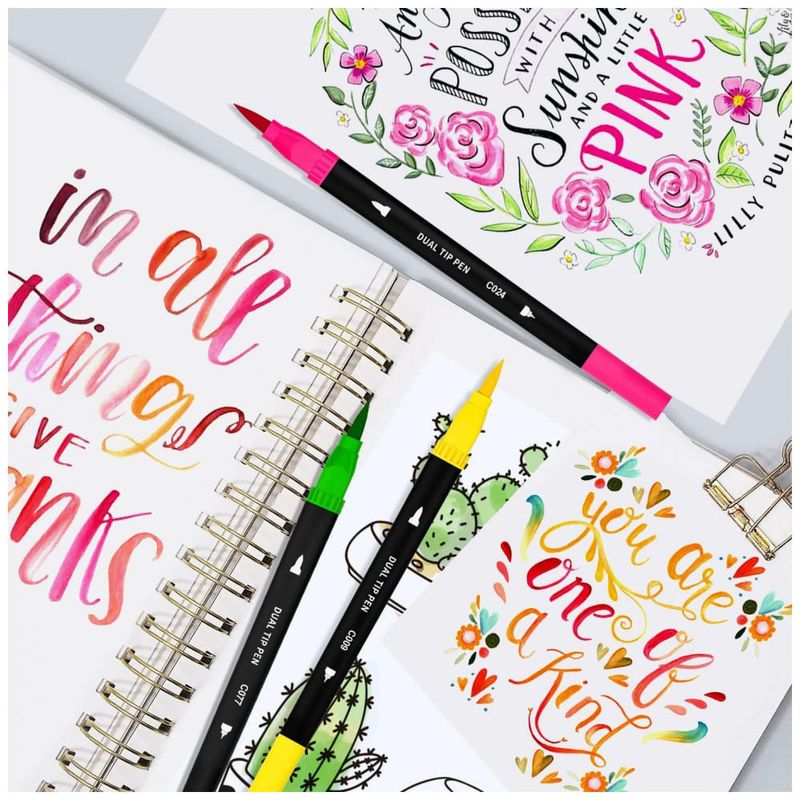 An
POSS
WITH
Sunshin
AND A LITTLE
PINK
LILLY PULITZ
in all
things
GIVE
anks
DUAL TIP PEN C024
DUAL TIP PEN C077
DUAL TIP PEN C009
you are
one of
a kind